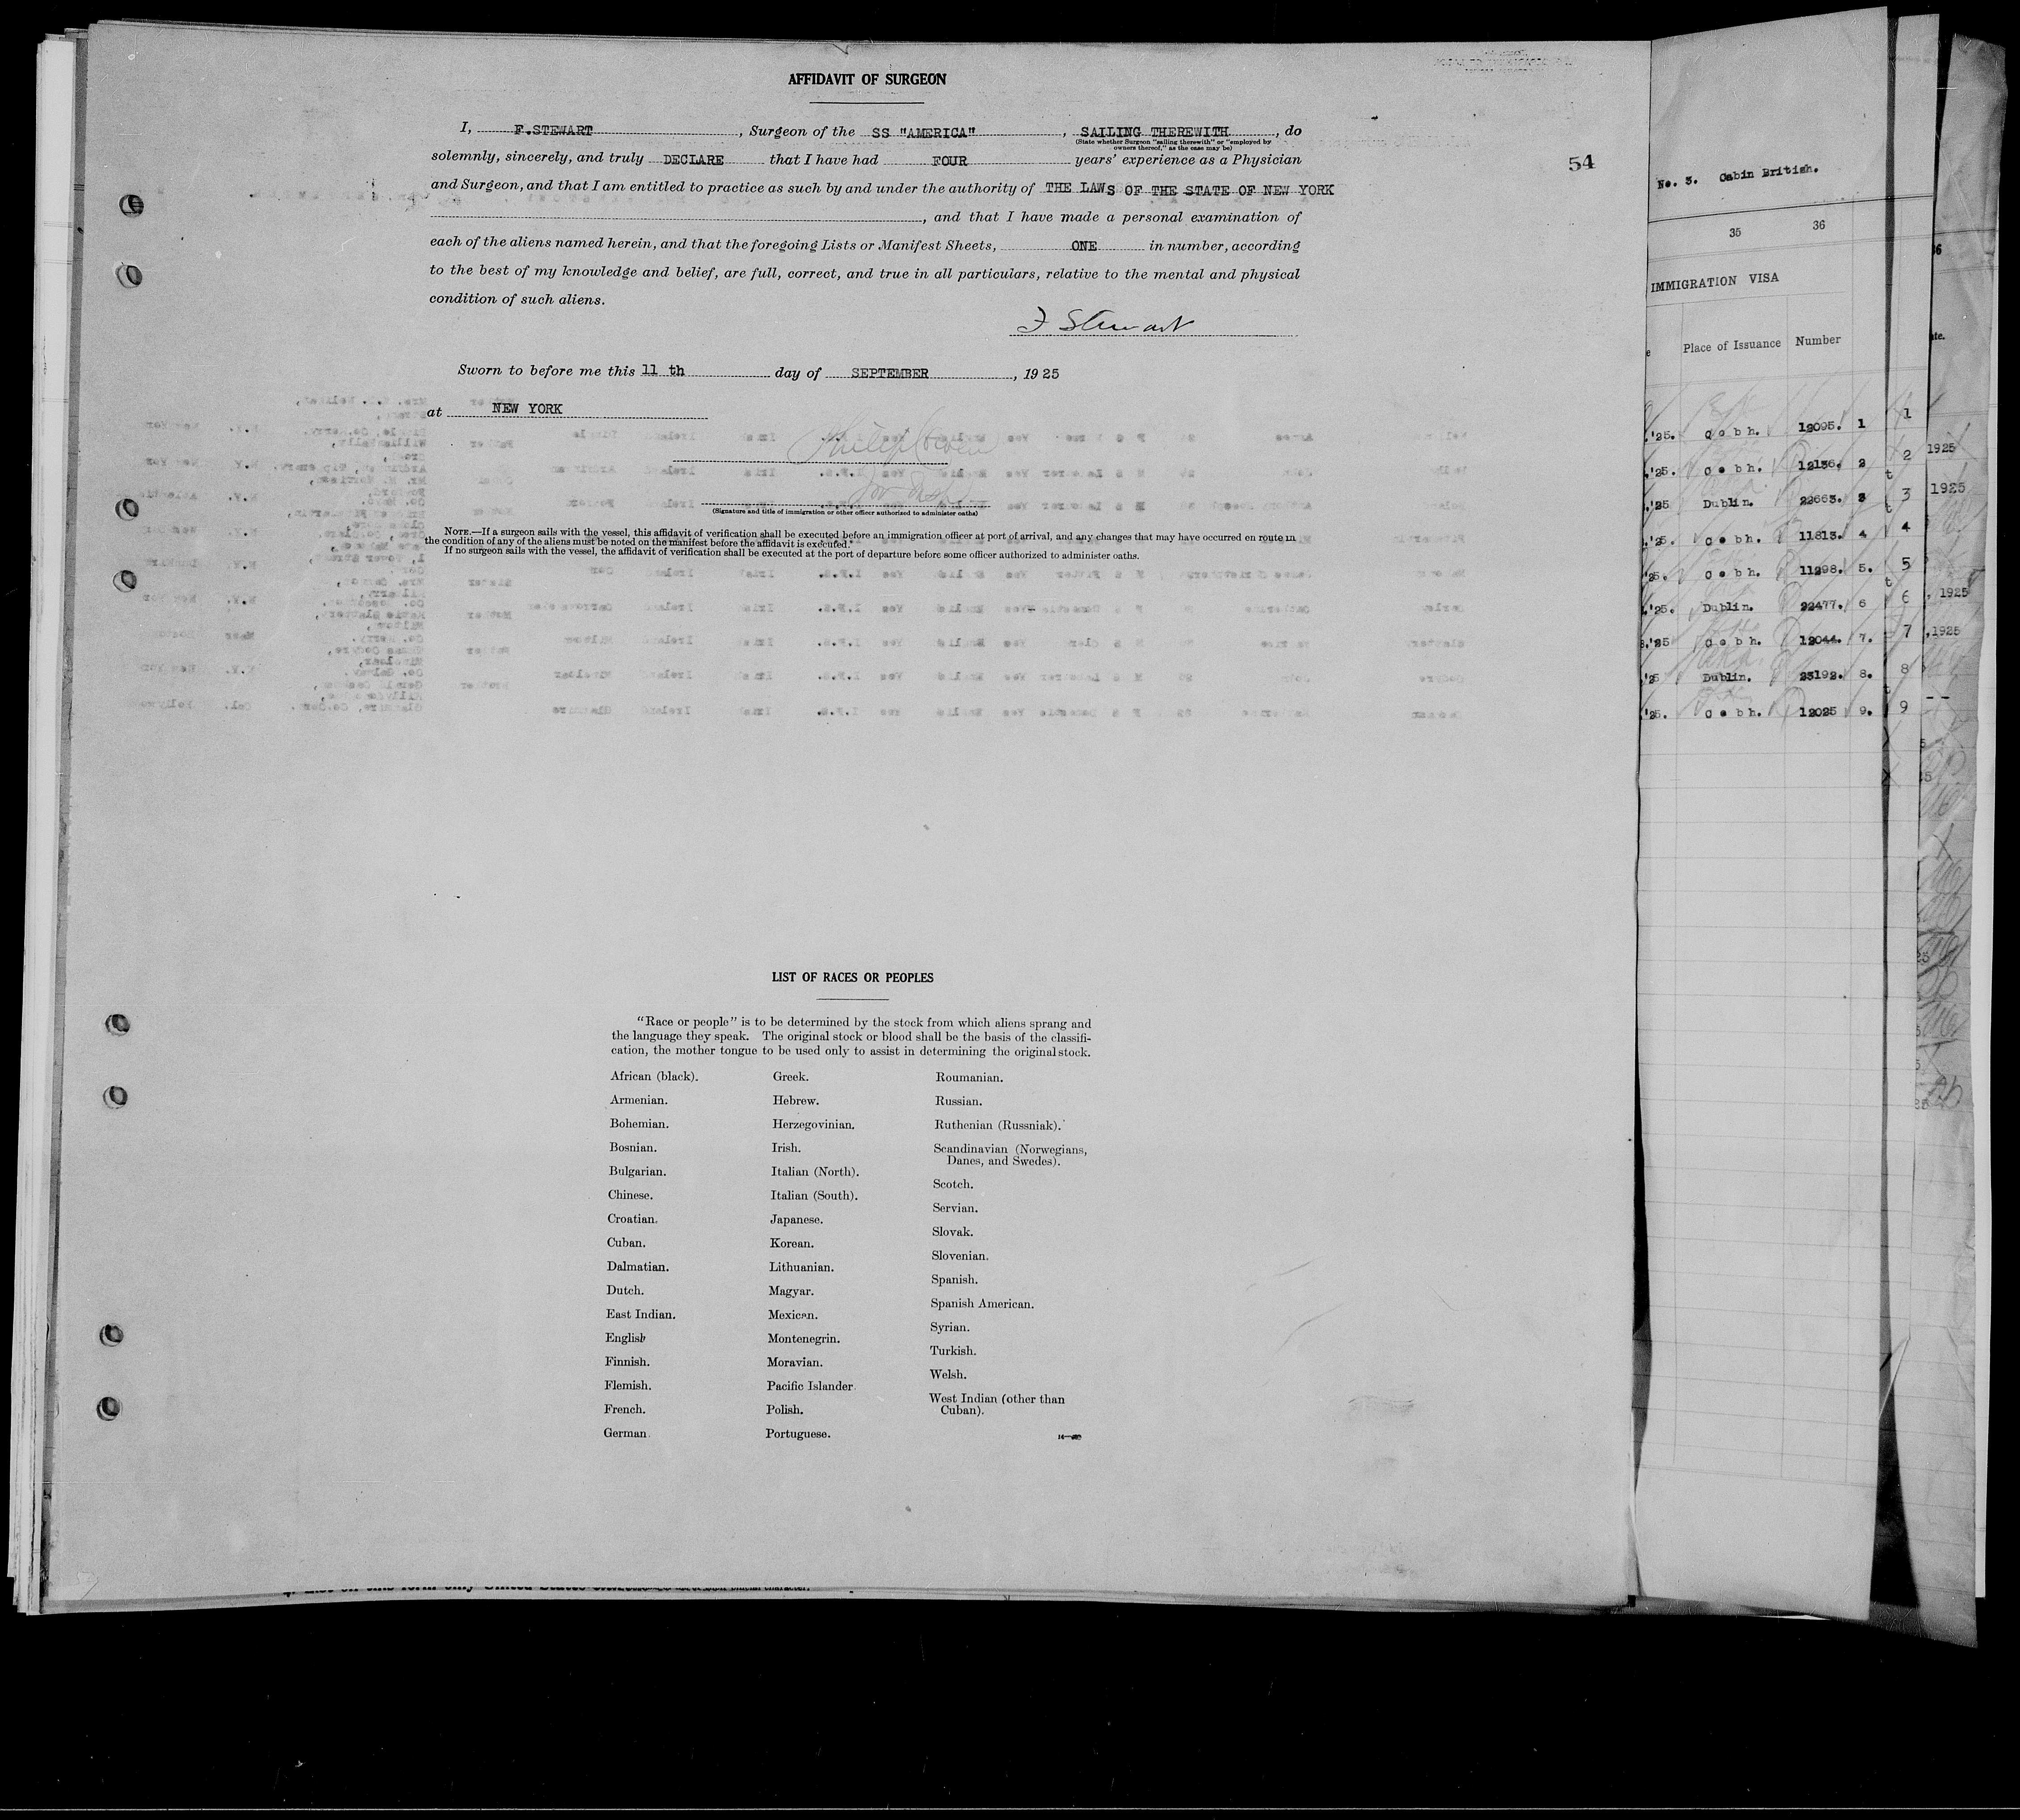 AFFIDAVIT OF SURGEON
I, F.STEWART, Surgeon of the SS "AMERICA", SAILING THEREWITH, do
(State whether Surgeon "sailing therewith" or "employed by
owners thereof," as the case may be)
solemnly, sincerely, and truly DECLARE that I have had FOUR years' experience as a Physician
54
and Surgeon, and that I am entitled to practice as such by and under the authority of THE LAWS OF THE STATE OF NEW YORK
, and that I have made a personal examination of
each of the aliens named herein, and that the foregoing Lists or Manifest Sheets, ONE in number, according
to the best of my knowledge and belief, are full, correct, and true in all particulars, relative to the mental and physical
condition of such aliens.
F Stewart
Sworn to before me this 11 th day of SEPTEMBER, 1925
at NEW YORK
(Signature and title of immigration or other officer authorized to administer oaths)
NOTE.—If a surgeon sails with the vessel, this affidavit of verification shall be executed before an immigration officer at port of arrival, and any changes that may have occurred en route in
the condition of any of the aliens must be noted on the manifest before the affidavit is executed.
If no surgeon sails with the vessel, the affidavit of verification shall be executed at the port of departure before some officer authorized to administer oaths.
LIST OF RACES OR PEOPLES
"Race or people" is to be determined by the stock from which aliens sprang and
the language they speak. The original stock or blood shall be the basis of the classifi-
cation, the mother tongue to be used only to assist in determining the original stock.
African (black).
Armenian.
Bohemian.
Bosnian.
Bulgarian.
Chinese.
Croatian.
Cuban.
Dalmatian.
Dutch.
East Indian.
English
Finnish.
Flemish.
French.
German.
Greek.
Hebrew.
Herzegovinian.
Irish.
Italian (North).
Italian (South).
Japanese.
Korean.
Lithuanian.
Magyar.
Mexican.
Montenegrin.
Moravian.
Pacific Islander.
Polish.
Portuguese.
Roumanian.
Russian.
Ruthenian (Russniak).
Scandinavian (Norwegians,
Danes, and Swedes).
Scotch.
Servian.
Slovak.
Slovenian.
Spanish.
Spanish American.
Syrian.
Turkish.
Welsh.
West Indian (other than
Cuban).
No. 3. Cabin British.
35 36
IMMIGRATION VISA
Place of Issuance Number
'25. Cobh. 12095. 1
'25. Cobh. 12136. 2
'25 Dublin. 22663. 3
'25. Cobh. 11813. 4
'25. Cobh. 11298. 5.
'25. Dublin. 22477. 6
'25 Cobh. 12044. 7.
'25 Dublin. 23192. 8.
'25. Cobh. 12025 9.
1
2 1925
3 1925
4
5
6 1925
7 ,1925
8
9 --